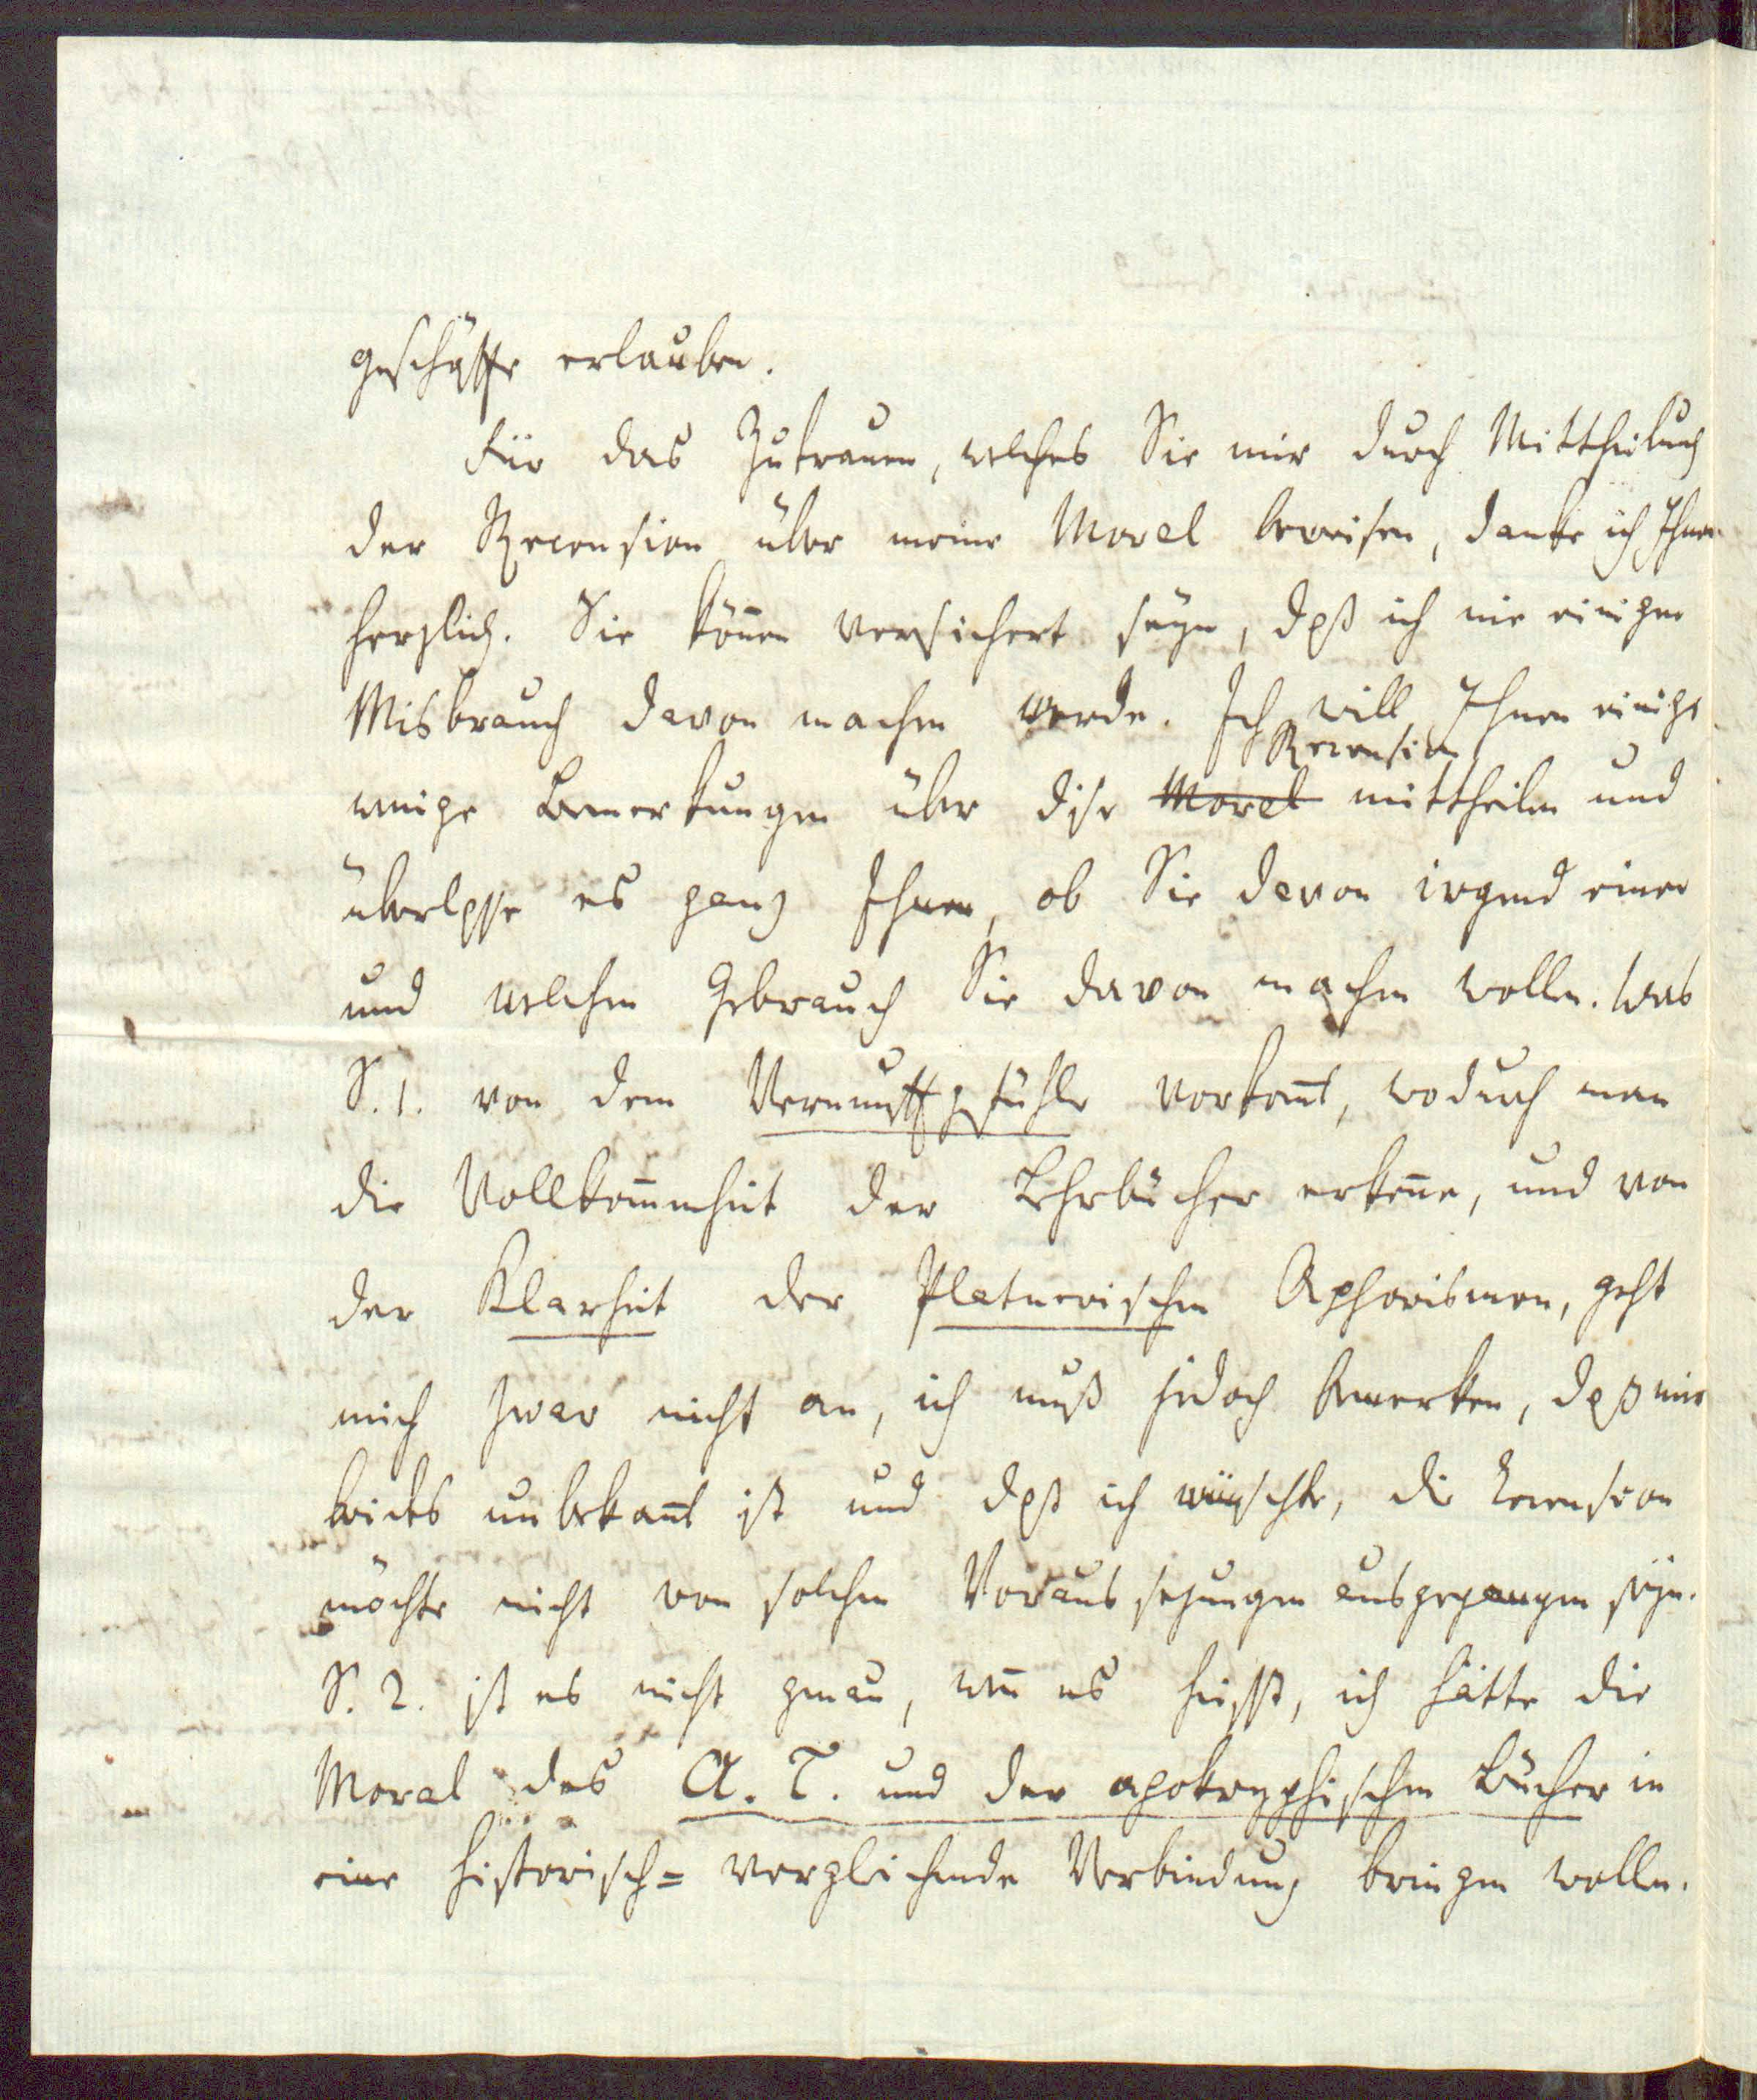 geschäffte erlauben.
Für das Zutrauen, welches Sie mir durch Mittheilung
der Recension über meine Moral beweisen, danke ich Ihnen
herzlich. Sie kön̄en versichert seyn, daß ich nie einigen
Misbrauch davon machen werde. Ich will Ihnen einige
Recension
wenige Bemerkungen über diese Moral mittheilen und
überlasse es ganz Ihnen, ob Sie davon irgend einen
und welchen Gebrauch Sie davon machen wollen. Was
S. 1. von dem Vernunftgefühle vorkom̄t, wodurch man
die Vollkom̄enheit der Lehrbücher erken̄e, und von
der Klarheit der Platnerischen Aphorismen, geht
mich zwar nicht an, ich muß jedoch bemerken, daß mir
beides unbekan̄t ist und daß ich wünschte, die Recension
möchte nicht von solchen Voraussezungen ausgegangen seyn.
S. 2. ist es nicht genau, wen̄ es heisst, ich hätte die
Moral des A. T. und der apokryphischen Bücher in
eine historisch-vergleichende Verbindung bringen wollen.